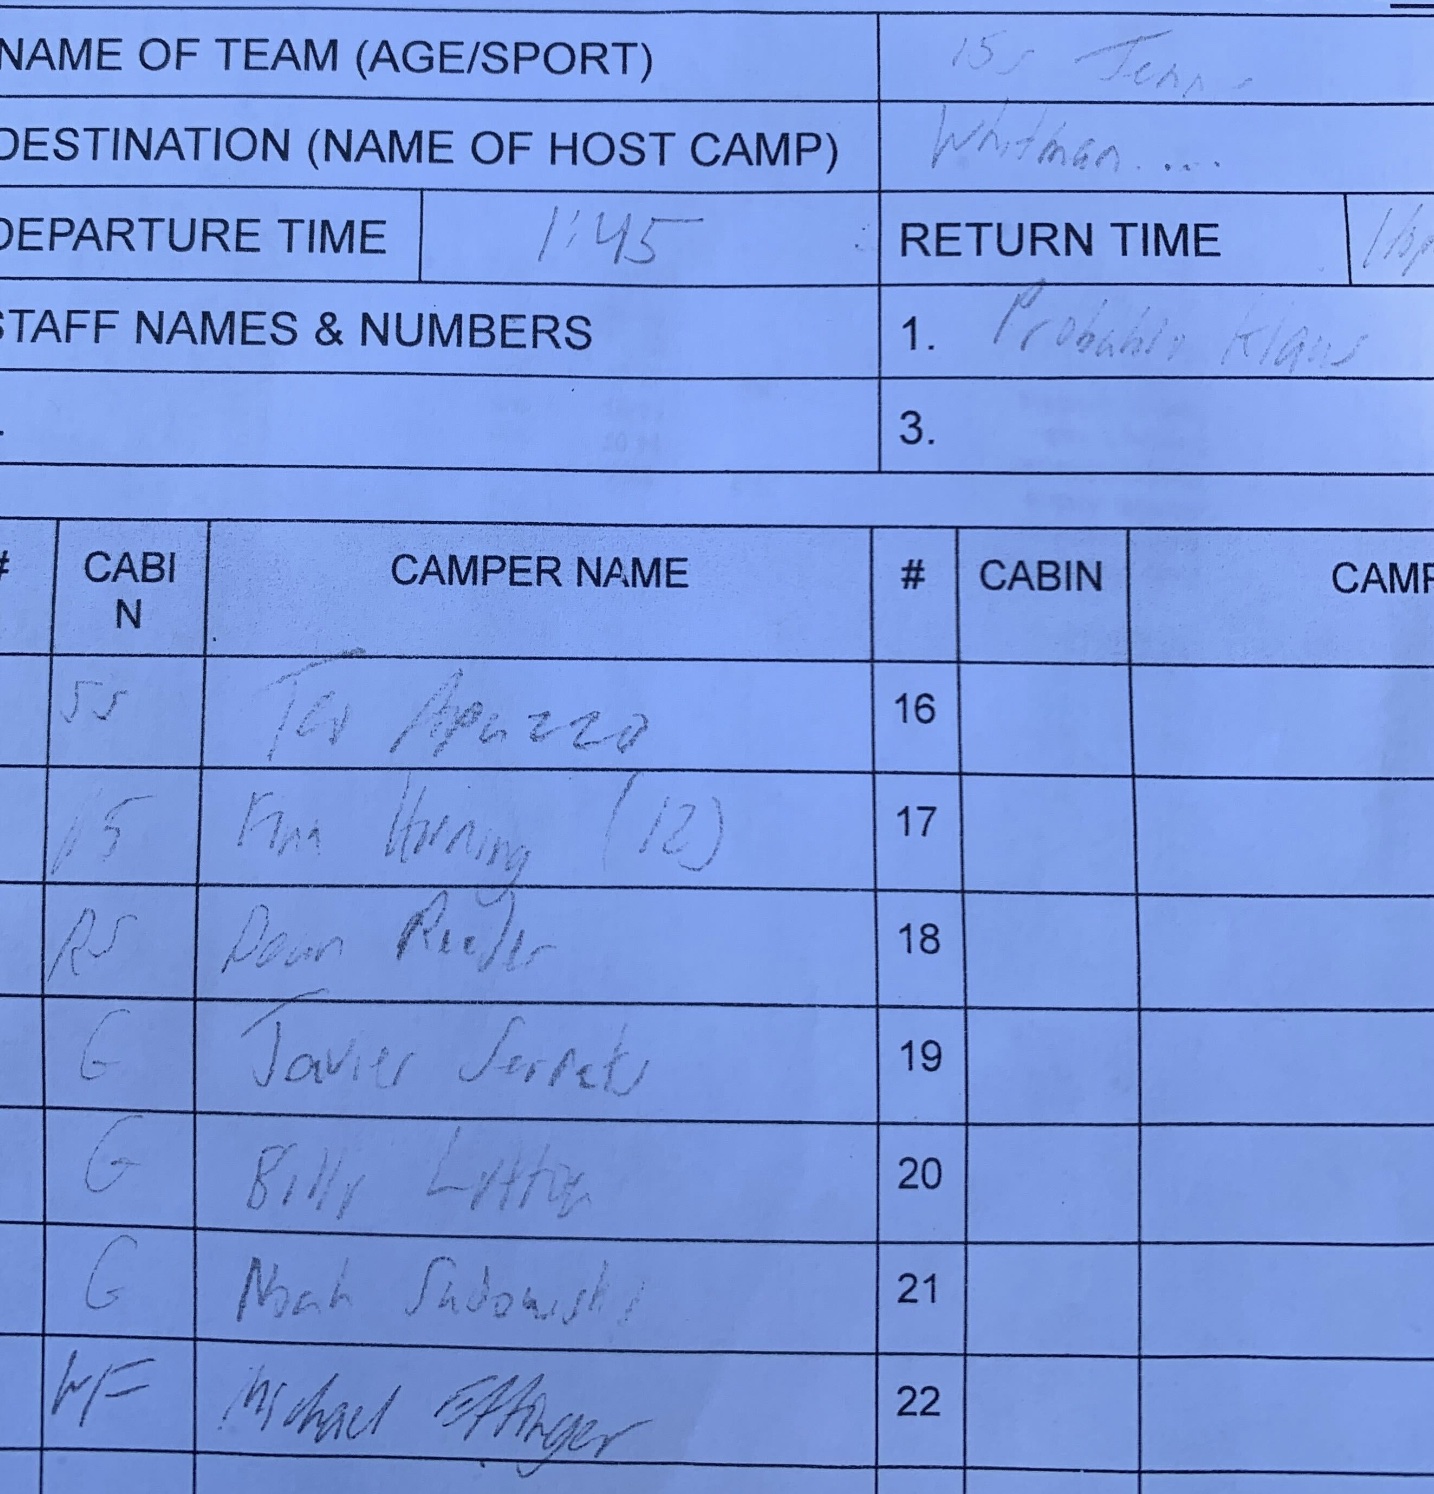 NAME OF TEAM (AGE/SPORT) 15s
DESTINATION (NAME OF HOST CAMP) Whitman....
DEPARTURE TIME 1:45 RETURN TIME
STAFF NAMES & NUMBERS 1. Probably Klaus
3.
# CABIN CAMPER NAME # CABIN CAMP
Apuzzo 16
15 Finn Horning (12) 17
RS Reeder 18
G Javier 19
G Billy 20
G Noah Sadowski 21
WF Michael Effinger 22